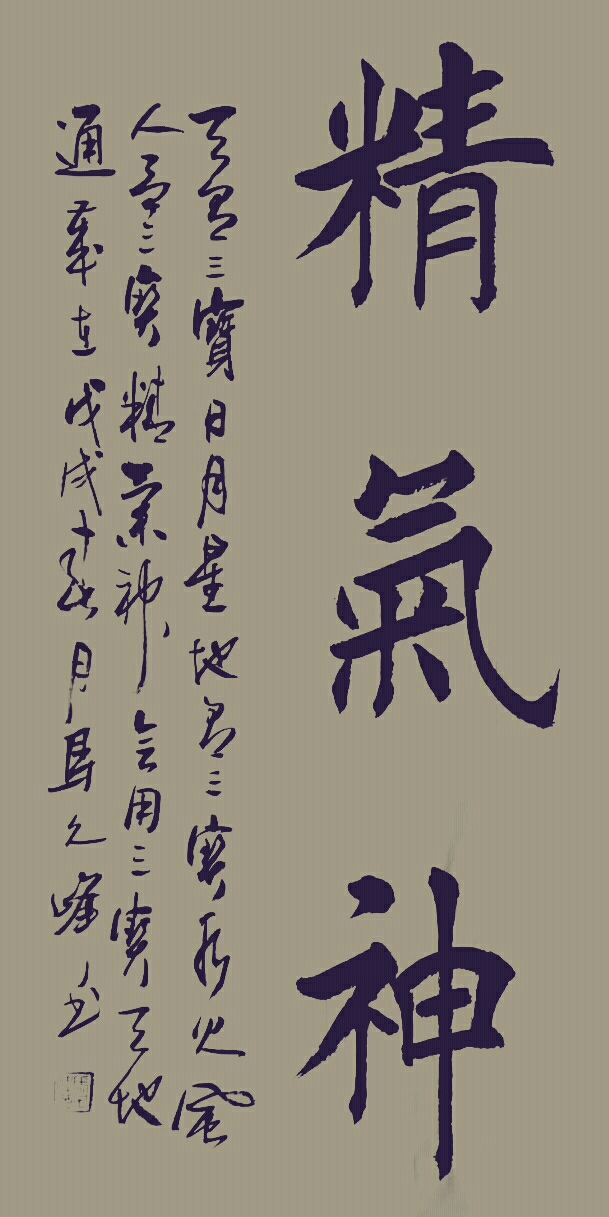 精氣神
天有三寶日月星地有三寶水火風
人有三寶精氣神會用三寶天地
通 歲在戊戌十一月馬久峰書